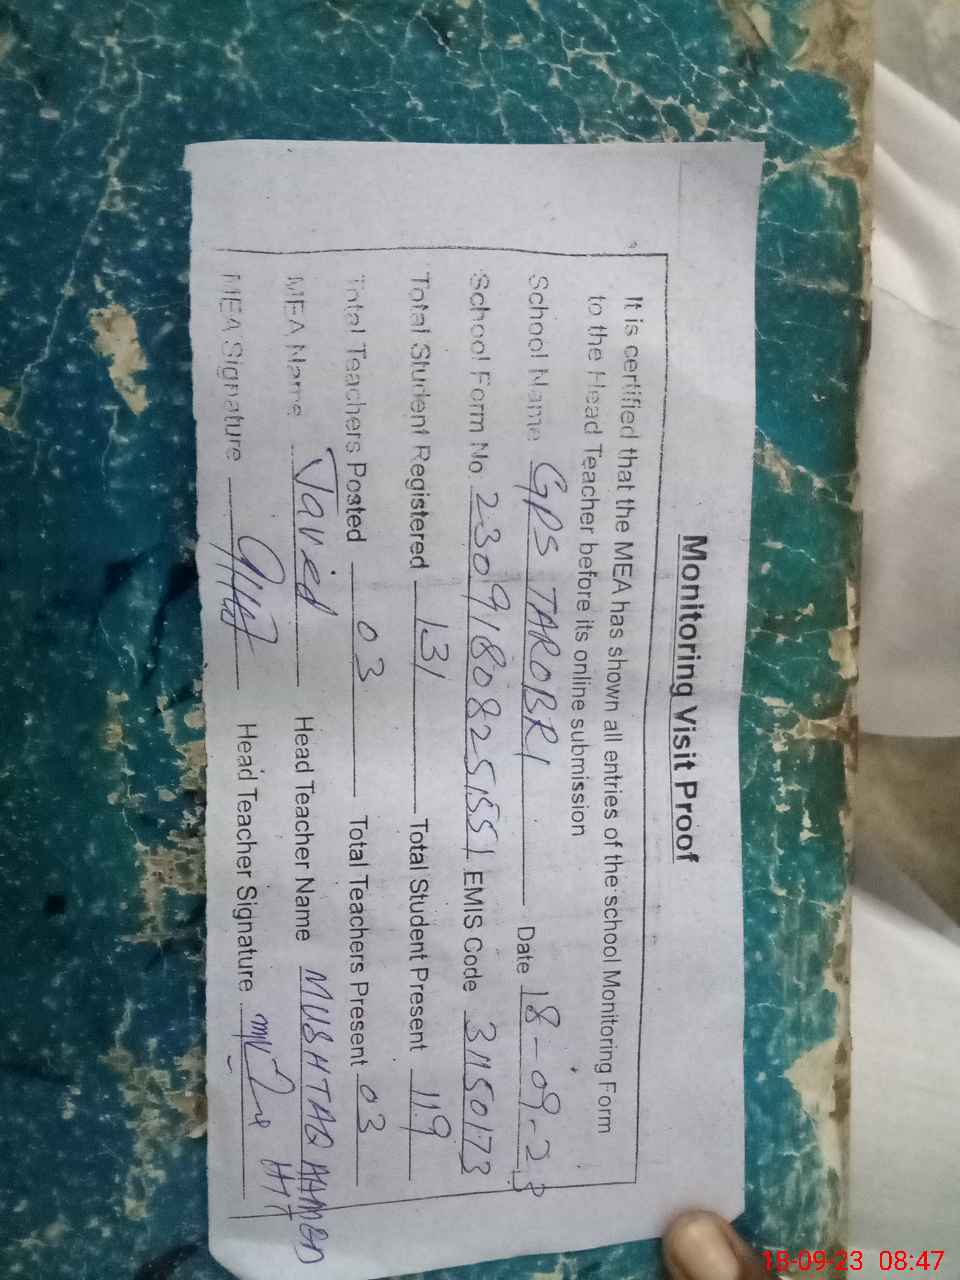 Monitoring Visit Proof
It is certified that the MEA has shown all entries of the school Monitoring Form
to the Head Teacher before its online submission
School Name GPS TAROBRI Date 18-09-23
School Form No. 2309180825551 EMIS Code 31150173
Total Student Registered 131 Total Student Present 119
Total Teachers Posted 03 Total Teachers Present 03
MEA Name Javed Head Teacher Name MUSHTAQ AHMED
MEA Signature Head Teacher Signature HT
18-09-23 08:47